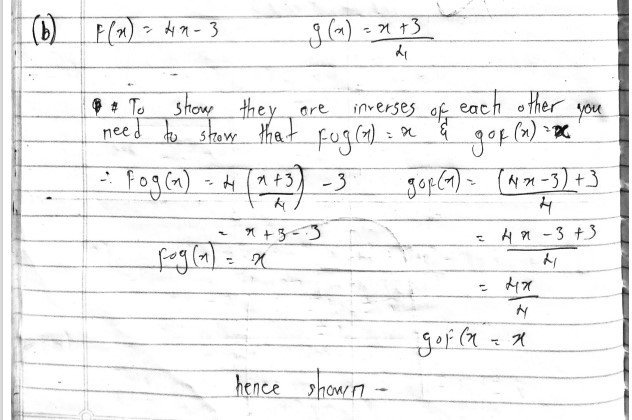 (b) F(x) = 4x - 3 g(x) = x + 3 / 4
# To show they are inverses of each other you
need to show that fog(x) = x & gof(x) = x
∴ Fog(x) = 4 (x + 3 / 4) - 3 gof(x) = (4x - 3) + 3 / 4
= x + 3 - 3 = 4x - 3 + 3 / 4
fog(x) = x
= 4x / 4
gof(x = x
hence shown -